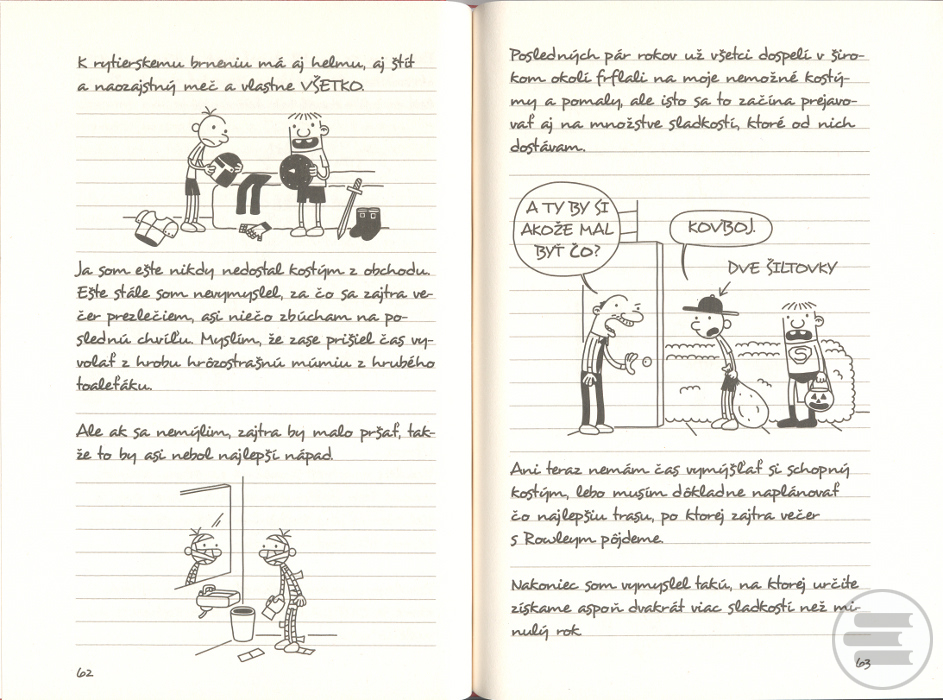 K rytierskemu brneniu má aj helmu, aj štít
a naozajstný meč a vlastne VŠETKO.
Ja som ešte nikdy nedostal kostým z obchodu.
Ešte stále som nevymyslel, za čo sa zajtra ve-
čer prezlečiem, asi niečo zbúcham na po-
slednú chvíľu. Myslím, že zase prišiel čas vy-
volať z hrobu hrôzostrašnú múmiu z hrubého
toaleťáku.
Ale ak sa nemýlim, zajtra by malo pršať, tak-
že to by asi nebol najlepší nápad.
62
Posledných pár rokov už všetci dospelí v širo-
kom okolí frflali na moje nemožné kostý-
my a pomaly, ale isto sa to začína prejavo-
vať aj na množstve sladkostí, ktoré od nich
dostávam.
A TY BY SI
AKOŽE MAL
BYŤ ČO?
KOVBOJ.
DVE ŠILTOVKY
Ani teraz nemám čas vymýšľať si schopný
kostým, lebo musím dôkladne naplánovať
čo najlepšiu trasu, po ktorej zajtra večer
s Rowleym pôjdeme.
Nakoniec som vymyslel takú, na ktorej určite
získame aspoň dvakrát viac sladkostí než mi-
nulý rok.
63